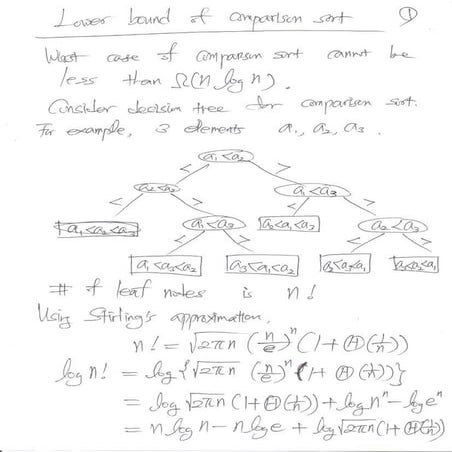 Lower bound of comparison sort ①
Worst case of comparison sort cannot be
less than Ω(n log n).
Consider decision tree for comparison sort.
For example, 3 elements a₁, a₂, a₃.
a₁<a₂
< >
a₂<a₃ a₁<a₃
< > < >
a₁<a₂<a₃ a₁<a₃ a₂<a₁<a₃ a₂<a₃
< > < >
a₁<a₃<a₂ a₃<a₁<a₂ a₃<a₂<a₁
# of leaf nodes is n!
Using Stirling's approximation,
n! = √2πn (n/e)ⁿ (1 + Θ(1/n))
log n! = log {√2πn (n/e)ⁿ (1 + Θ(1/n))}
= log √2πn (1 + Θ(1/n)) + log nⁿ − log eⁿ
= n log n − n log e + log √2πn (1 + Θ(1/n))